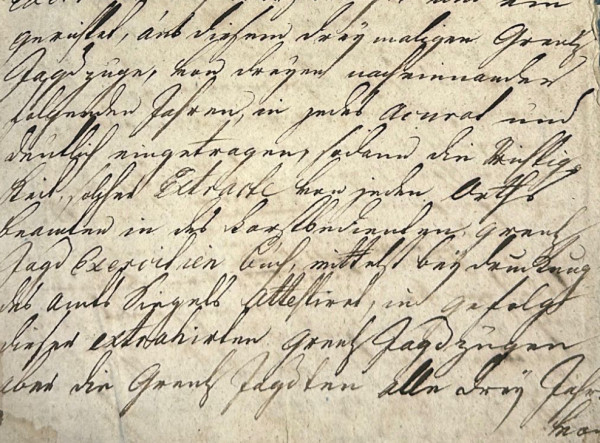 und ein
gerichtet, aus diesem dreymaligen Grentz
Jagdzuge, von dreyen nacheinander
folgenden Jahren, in jedes Acurat und
deutlich eingetragen, sodann die Richtig
keit, solcher Extracte von jeden Orths
beamten in des Forstbedienten Grentz
Jagd Exercitien buch, mittelst beydruckung
des Amts Siegels Attestiret, in gefolg
dieser extrahirten Grentz Jagdzügen
aber die Grentz Jagdten alle drey Jahr